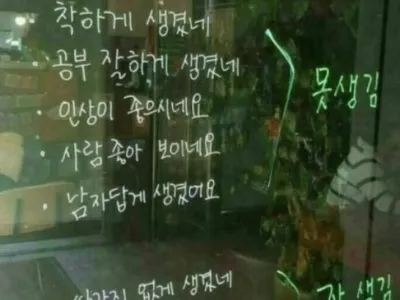 착하게 생겼네
· 공부 잘하게 생겼네
· 인상이 좋으시네요
· 사람 좋아 보이네요
· 남자답게 생겼어요
못생김
없게 생겼네
생김